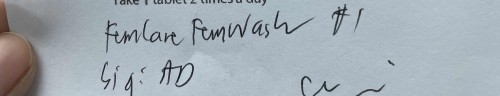 Take 1 tablet 2 times a day
Femcare Femwash #1
Sig: AD